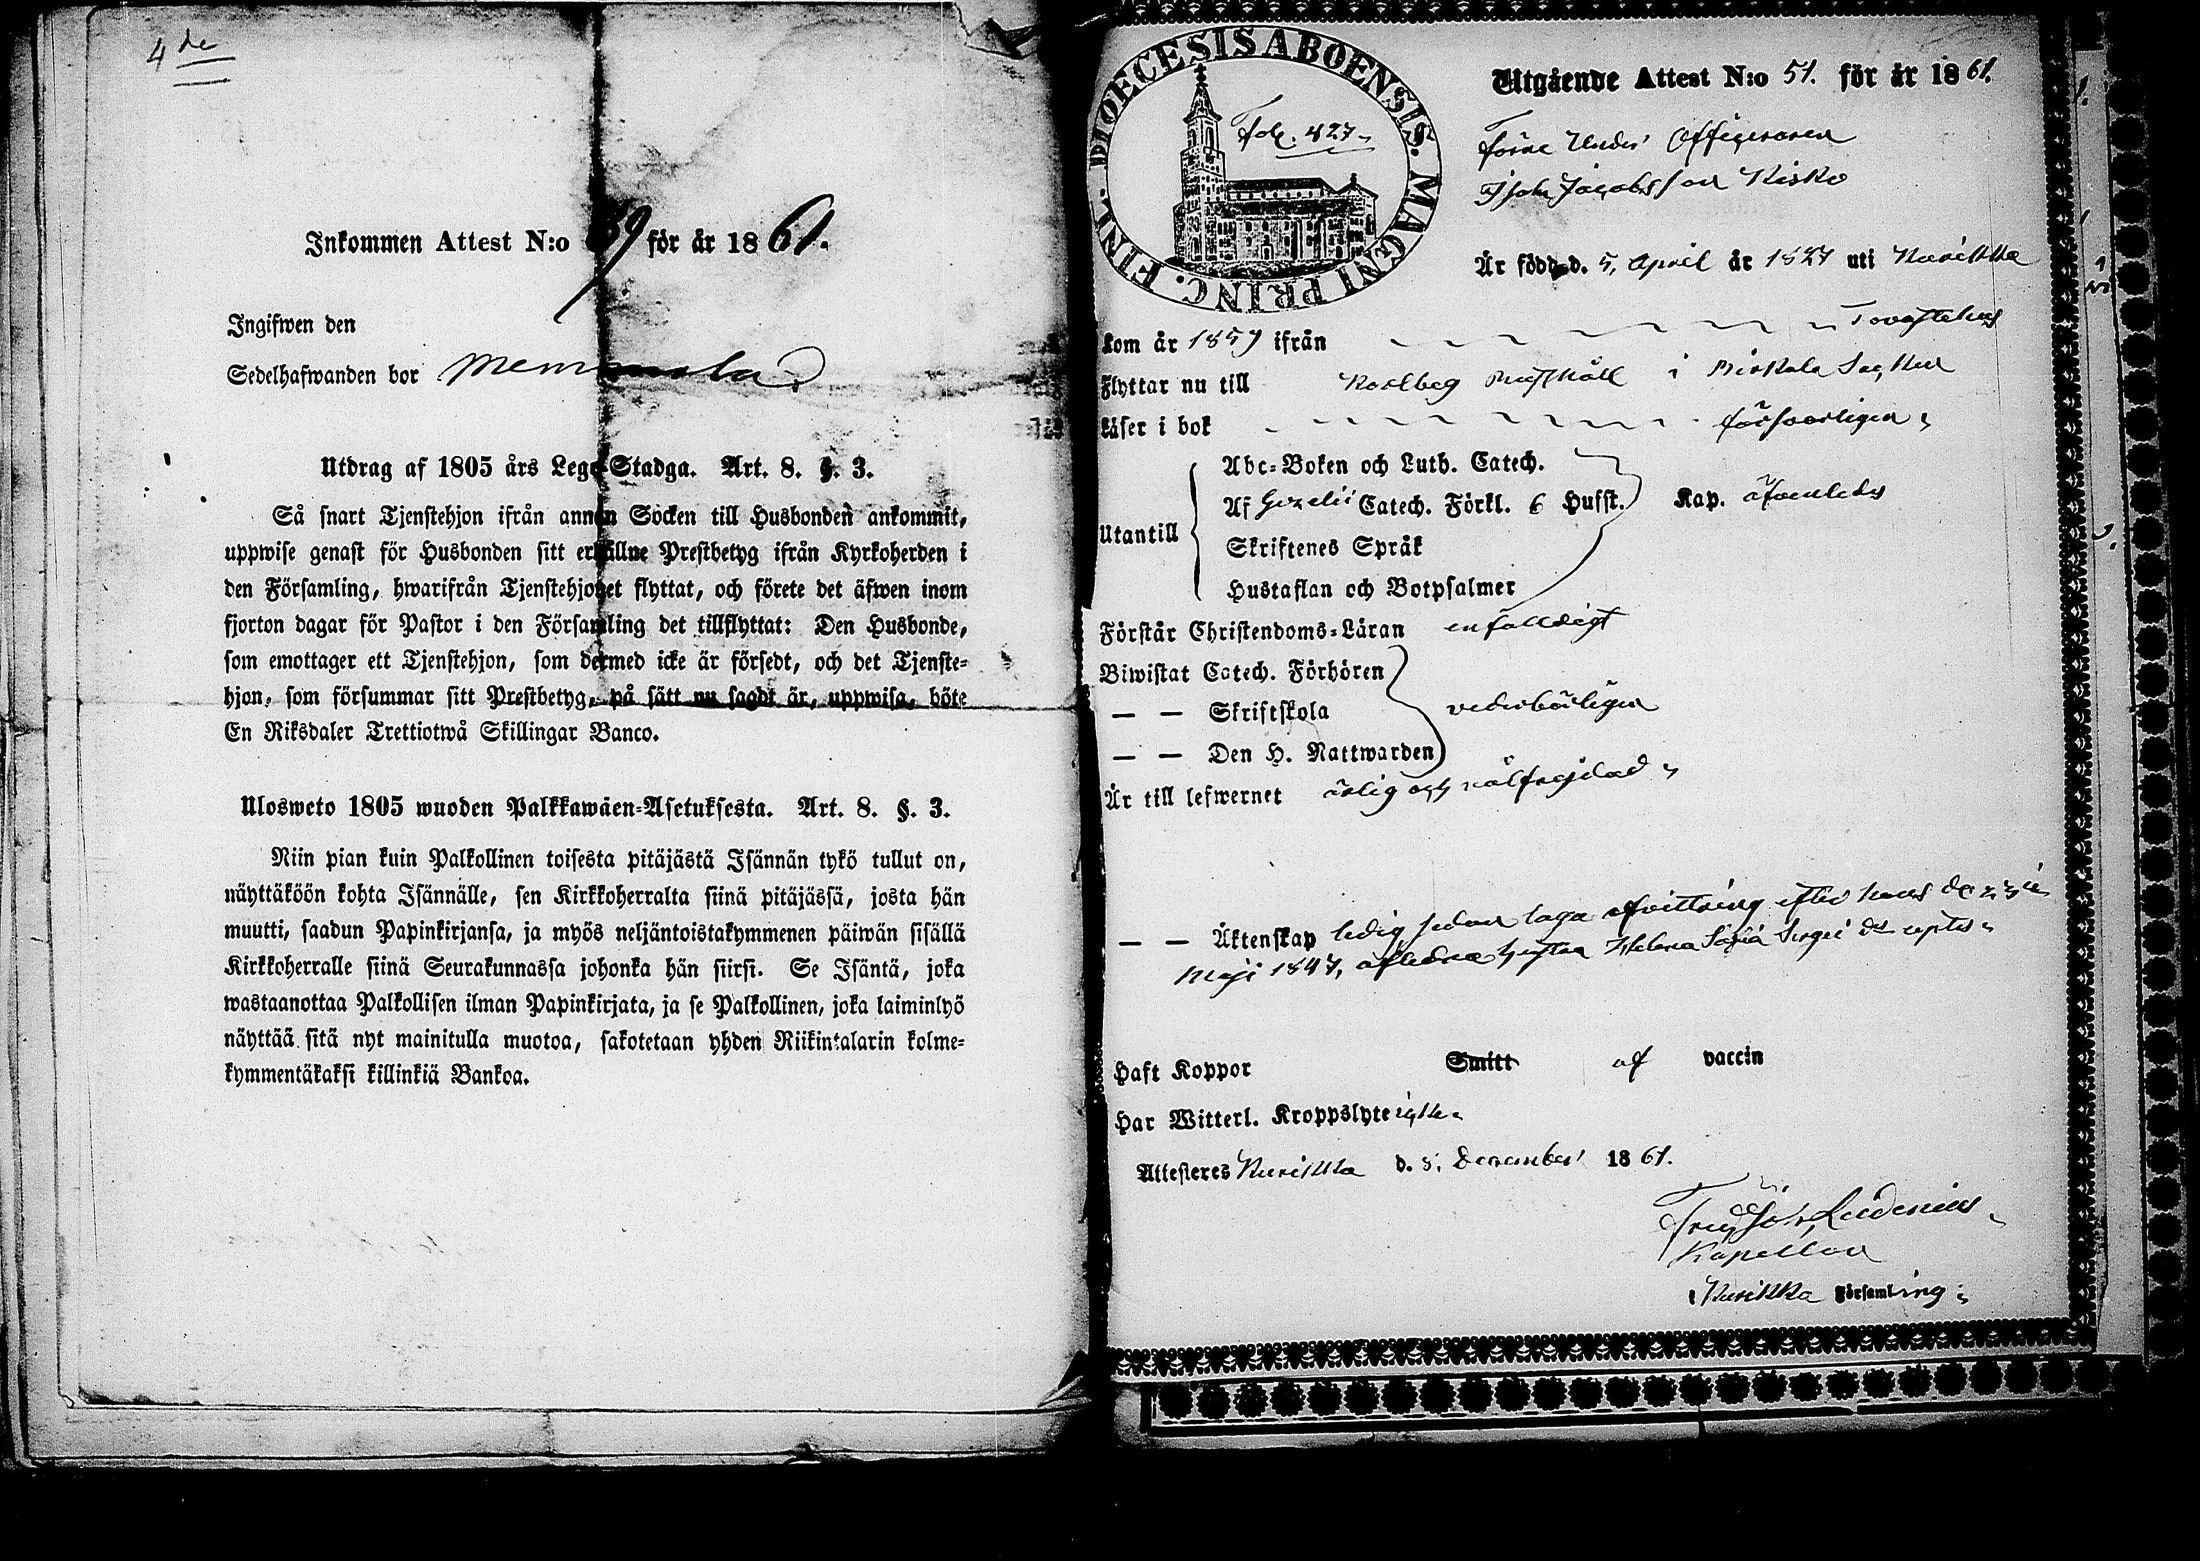 4 de
Inkommen Attest N:o 69 för år 1861.
Ingifwen den
Sedelhafwanden bor
Utdrag af 1805 års Lego-Stadga. Art. 8. §. 3.
Så snart Tjenstehjon ifrån annan Socken till Husbonden ankommit,
uppwise genast för Husbonden sitt erhållne Prestbetyg ifrån Kyrkoherden i
den Församling, hwarifrån Tjenstehjonet flyttat, och förete det äfwen inom
fjorton dagar för Pastor i den Församling det tillflyttat: Den Husbonde,
som emottager ett Tjenstehjon, som dermed icke är försedt, och det Tjenste-
hjon, som försummar sitt Prestbetyg, på sätt nu sagdt är, uppwisa, böte
En Riksdaler Trettiotwå Skillingar Banco.
Ulosweto 1805 wuoden Palkkawäen-Asetuksesta. Art. 8. §. 3.
Niin pian kuin Palkollinen toisesta pitäjästä Isännän tykö tullut on,
näyttäköön kohta Isännälle, sen Kirkkoherralta siinä pitäjässä, josta hän
muutti, saadun Papinkirjansa, ja myös neljäntoistakymmenen päiwän sisällä
Kirkkoherralle siinä Seurakunnassa johonka hän siirsi. Se Isäntä, joka
wastaanottaa Palkollisen ilman Papinkirjata, ja se Palkollinen, joka laiminlyö
näyttää sitä nyt mainitulla muotoa, sakotetaan yhden Riikintalarin kolme-
kymmentäkaksi killinkiä Bankoa.
DIOECESIS ABOENSIS. MAGNI PRINC. FINL.
Fol. 427
Utgående Attest N:o 51. för år 1861.
Förre Under Officeraren
Jacobsson Kisko
Är född d. 5, April år 1827 uti Kurikka
Kom år 1859 ifrån Tavastehus
Flyttar nu till i Pirkala Socken
Läser i bok försvarligen
Utantill
Abc-Boken och Luth. Catech.
Af Gezelii Catech. Förkl. 6 Hufst. Kap. äfvenledes
Skriftenes Språk
Hustaflan och Botpsalmer
Förstår Christendoms-Läran enfalldigt
Biwistat Catech. Förhören
— — Skriftskola vederbörligen
— — Den H. Nattwarden
Är till lefwernet ärlig och välfrejdad
— — Äktenskap ledig sedan laga afvittring efter hans den 23 i
Maji 1847, aflidna hustru Helena Sofia
Haft Koppor Smitt af vaccin
Har Witterl. Kroppslyte icke.
Attesteres Kurikka d. 5. December 1861.
Kapellan
i Kurikka Församling